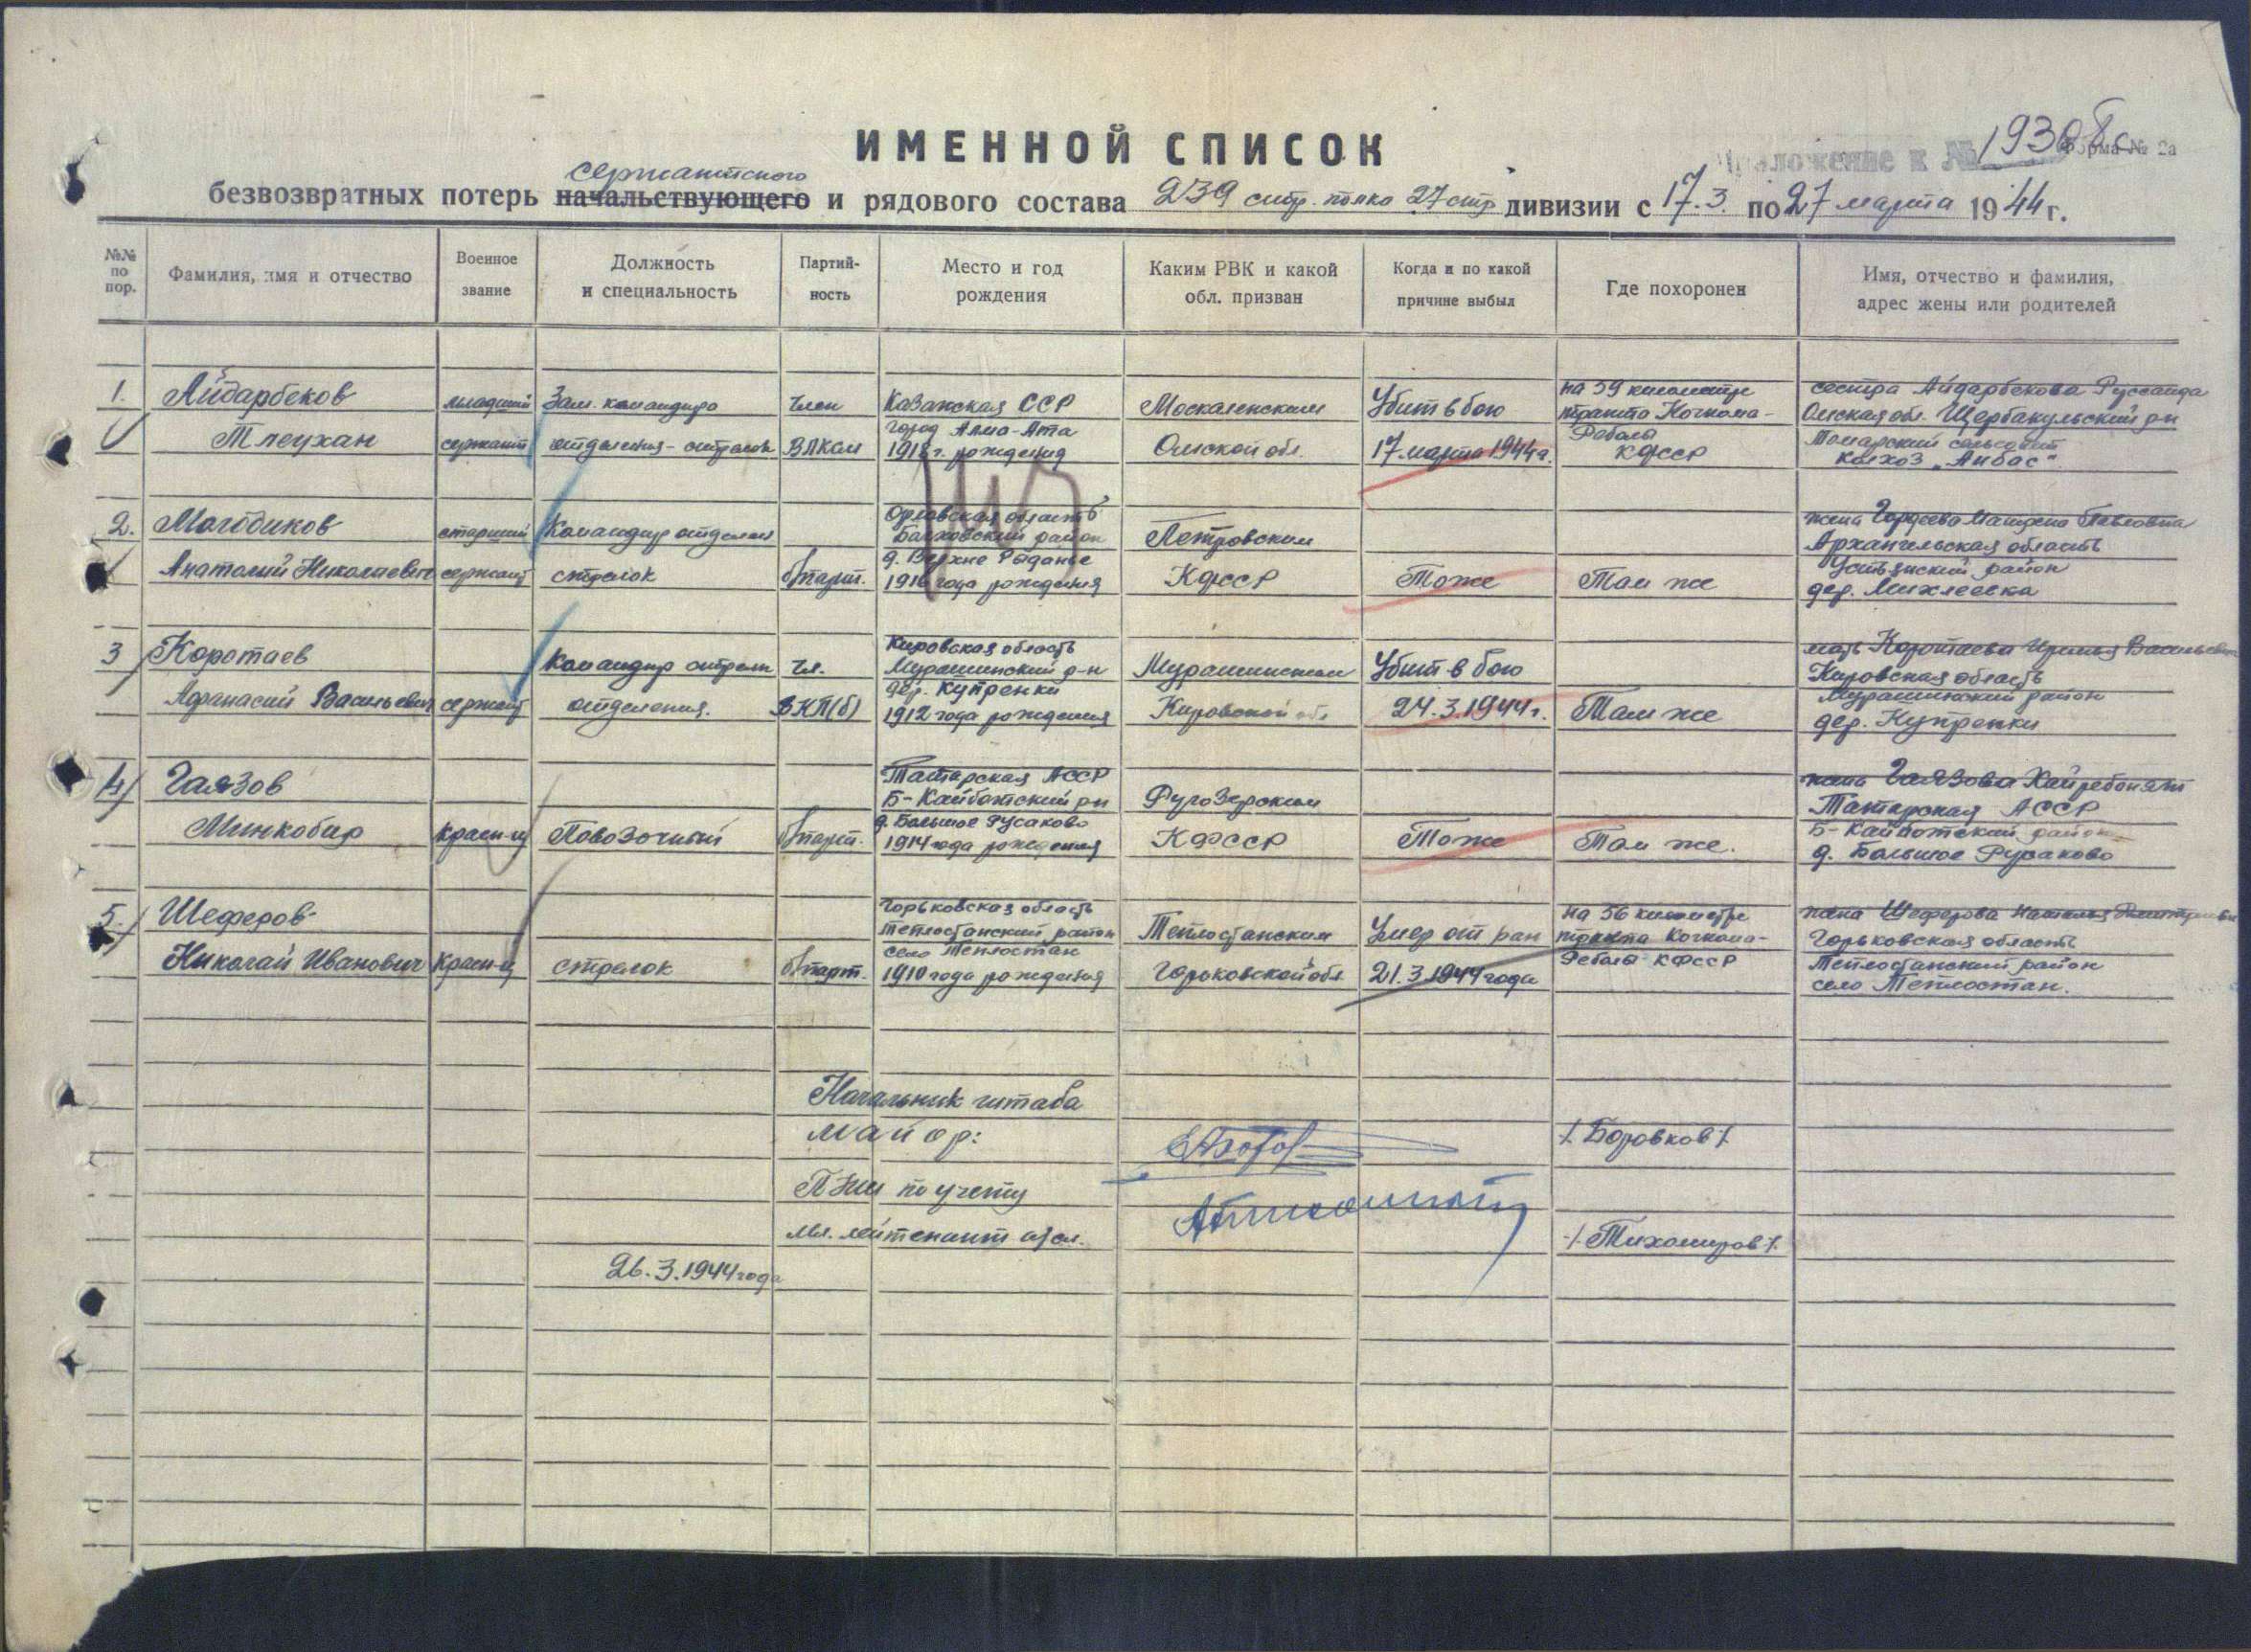 ИМЕННОЙ СПИСОК
Приложение к № 1930 Форма № 2а
сержантского
безвозвратных потерь начальствующего и рядового состава 239 стр. полка 27 стр дивизии с 17.3. по 27 марта 1944 г.
№№ по пор.
Фамилия, имя и отчество
Военное звание
Должность и специальность
Партий- ность
Место и год рождения
Каким РВК и какой обл. призван
Когда и по какой причине выбыл
Где похоронен
Имя, отчество и фамилия, адрес жены или родителей
1.
Айдарбеков
Тлеухан
младший
сержант
Зам. командира
отделения - стрелок
Член
ВЛКСМ
Казахская ССР
город Алма-Ата
1918 г. рождения
Москаленским
Омской обл.
Убит в бою
17 марта 1944 г.
на 39 километре
тракта Кочкома-
Реболы
КФССР
сестра Айдарбекова
Омская обл. Щербакульский р-н
сельсовет
Колхоз „Аубас"
2.
Магодиков
Анатолий Николаевич
старший
сержант
Командир отделен
стрелок
б/парт.
Орловская область
Болховский район
д. Верхне
1916 года рождения
Петровским
КФССР
Тоже
Там же
жена Гордеева Павловна
Архангельская область
Устьянский район
дер.
3
Коротаев
Афанасий Васильевич
сержант
Командир стрелк
отделения.
Чл.
ВКП(б)
Кировская область
Мурашинский р-н
дер. Купренки
1912 года рождения
Мурашинским
Кировской обл
Убит в бою
24.3.1944 г.
Там же
мать Коротаева
Кировская область
Мурашинский район
дер. Купренки
4
Гаязов
Минкобир
красн-ц
Повозочный
б/парт.
Татарская АССР
Б-Кайбатский рн
д. Большое Русаково
1914 года рождения
Ругозерским
КФССР
Тоже
Там же.
жена Гаязова
Татарская АССР
Б-Кайбатский район
д. Большое Русаково
5.
Шеферов
Николай Иванович
Красн-ц
стрелок
б/парт.
Горьковская область
Теплостанский район
село Теплостан
1910 года рождения
Теплостанским
Горьковской обл
Умер от ран
21.3.1944 года
на 56 километре
тракта Кочкома-
Реболы КФССР
жена Шеферова Наталья Дмитриевна
Горьковская область
Теплостанский район
село Теплостан.
Начальник штаба
майор:
/Боровков/
ПНШ по учету
мл. лейтенант а/сл.
/Тихомиров/
26.3.1944 года